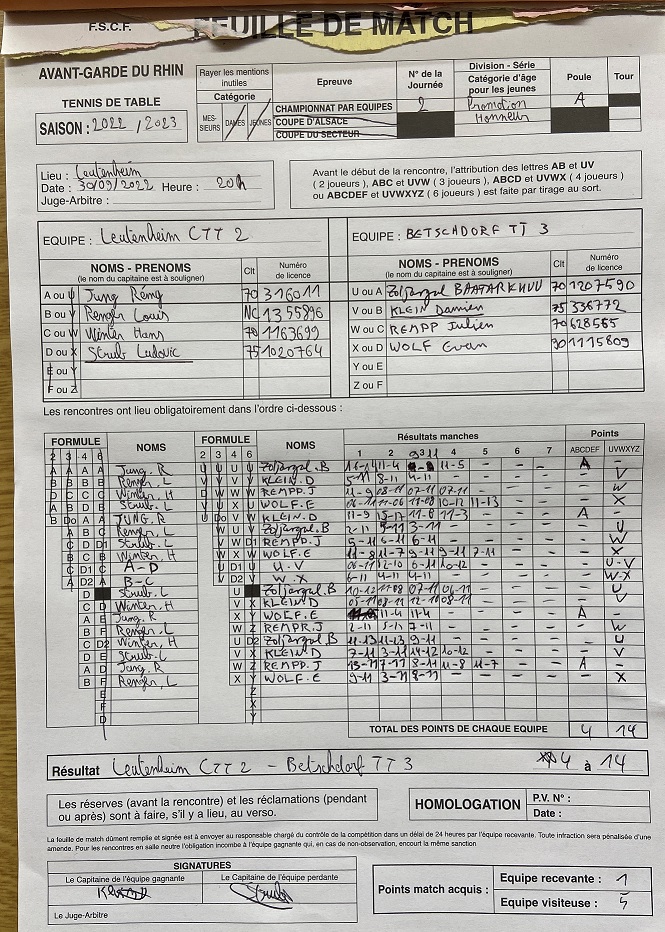 F.S.C.F. FEUILLE DE MATCH
AVANT-GARDE DU RHIN
TENNIS DE TABLE
SAISON : 2022 / 2023
Rayer les mentions inutiles
Catégorie
MES-SIEURS DAMES JEUNES
Epreuve
CHAMPIONNAT PAR EQUIPES
COUPE D'ALSACE
COUPE DU SECTEUR
N° de la Journée
2
Division - Série
Catégorie d'âge pour les jeunes
Promotion
Honneur
Poule
A
Tour
Lieu : Leutenheim
Date : 30/09/2022 Heure : 20h
Juge-Arbitre :
Avant le début de la rencontre, l'attribution des lettres AB et UV
( 2 joueurs ), ABC et UVW ( 3 joueurs ), ABCD et UVWX ( 4 joueurs )
ou ABCDEF et UVWXYZ ( 6 joueurs ) est faite par tirage au sort.
EQUIPE : Leutenheim CTT 2
EQUIPE : BETSCHDORF TT 3
NOMS - PRENOMS (le nom du capitaine est à souligner) Clt Numéro de licence
A ou U Jung Rémy 70 316011
B ou V Renger Louis NC 1355896
C ou W Winter Hans 70 1163699
D ou X Strub Ludovic 75 1020764
E ou Y
F ou Z
NOMS - PRENOMS (le nom du capitaine est à souligner) Clt Numéro de licence
U ou A Zoljargal BAATARKHUU 70 1207590
V ou B KLEIN Damien 75 336772
W ou C REMPP Julien 70 628565
X ou D WOLF Evan 30 1115809
Y ou E
Z ou F
Les rencontres ont lieu obligatoirement dans l'ordre ci-dessous :
FORMULE NOMS FORMULE NOMS Résultats manches Points
2 3 4 6 2 3 4 6 1 2 3 4 5 6 7 ABCDEF UVWXYZ
A A A A Jung. R U U U U Zoljargal.B 11-4 9-11 11-5 - - - A -
B B B B Renger. L V V V V KLEIN.D 5-11 8-11 4-11 - - - - - V
C C C Winter. H W W W REMPP.J 11-9 08-11 07-11 07-11 - - - - W
D B D E Strub. L X WOLF.E 11-06 10-12 11-13 - - - X
B Do A A JUNG. R U Do V W KLEIN.D 11-9 15-17 11-8 11-3 - - - A -
A B C Renger. L W U U Zoljargal.B 2-11 3-11 - - - - - U
C D D1 Strub. L U W D1 REMPP.J 5-11 6-11 6-11 - - - - - W
B C B Winter. H W X W WOLF.E 11-8 11-7 9-11 9-11 7-11 - - - X
C D1 C A-D U D1 U U.V 06-11 12-10 6-11 10-12 - - - - U-V
A D2 A B-C V D2 V W.X 6-11 4-11 4-11 - - - - - W-X
D Strub. L U Zoljargal.B 10-12 06-11 - - - - U
C D Winter. H V X KLEIN D 05-11 08-11 12-10 08-11 - - - - V
A E Jung. R X Y WOLF.E 11-4 11-4 - - - - A -
B F Renger. L W Z REMPP.J 2-11 5-11 7-11 - - - - - W
C D2 Winter, H U D2 Zoljargal.B 11-13 11-13 9-11 - - - - - U
D E Strub. L V X KLEIN D 7-11 3-11 14-12 10-12 - - - - V
A D Jung. R W Z REMPP.J 13-11 7-11 8-11 11-8 11-7 - - A -
B F Renger, L X Y WOLF.E 9-11 3-11 8-11 - - - - - X
E Z
F X
D Y
TOTAL DES POINTS DE CHAQUE EQUIPE 4 14
Résultat Leutenheim CTT 2 - Betschdorf TT 3 4 à 14
Les réserves (avant la rencontre) et les réclamations (pendant
ou après) sont à faire, s'il y a lieu, au verso.
HOMOLOGATION
P.V. N° :
Date :
La feuille de match dûment remplie et signée est à envoyer au responsable chargé du contrôle de la compétition dans un délai de 24 heures par l'équipe recevante. Toute infraction sera pénalisée d'une
amende. Pour les rencontres en salle neutre l'obligation incombe à l'équipe gagnante qui, en cas de non-observation, encourt la même sanction
SIGNATURES
Le Capitaine de l'équipe gagnante Le Capitaine de l'équipe perdante
Strub
Le Juge-Arbitre
Points match acquis :
Equipe recevante : 1
Equipe visiteuse : 5